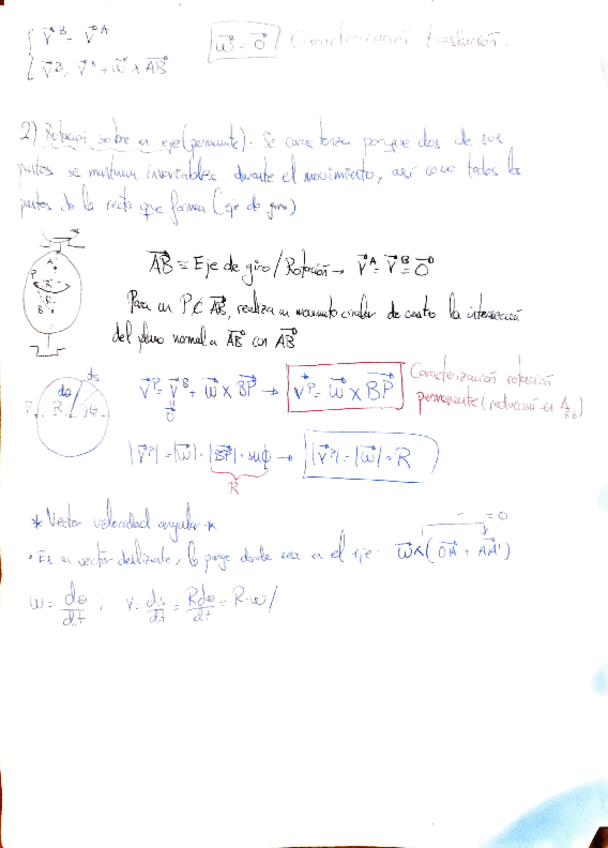 { v⃗ᴮ = v⃗ᴬ
{ v⃗ᴮ = v⃗ᴬ + ω⃗ x AB⃗
ω⃗ = 0⃗ Caracterización traslación.
2) Rotación sobre un eje (permanente). Se caracteriza porque dos de sus
puntos se mantienen invariables durante el movimiento, así como todos los
puntos de la recta que forman (eje de giro)
A
P
R
B
AB⃗ ≡ Eje de giro / Rotación → v⃗ᴬ = v⃗ᴮ = 0⃗
Para un P ∉ AB⃗, realiza un movimiento circular de centro la intersección
del plano normal a AB⃗ con AB⃗
ds
dθ
P R θ
v⃗ᴾ = v⃗ᴮ + ω⃗ x BP⃗ → v⃗ᴾ = ω⃗ x BP⃗
0⃗
Caracterización rotación
permanente (reducción en
|v⃗ᴾ| = |ω⃗| · |BP⃗| · senϕ → |v⃗ᴾ| = |ω⃗| · R
R
* Vector velocidad angular *
· Es un vector deslizante, lo pongo donde sea en el eje. ω⃗ x (OA⃗ + AA'⃗)
= 0
ω = dθ/dt ; v = ds/dt = Rdθ/dt = R·ω /